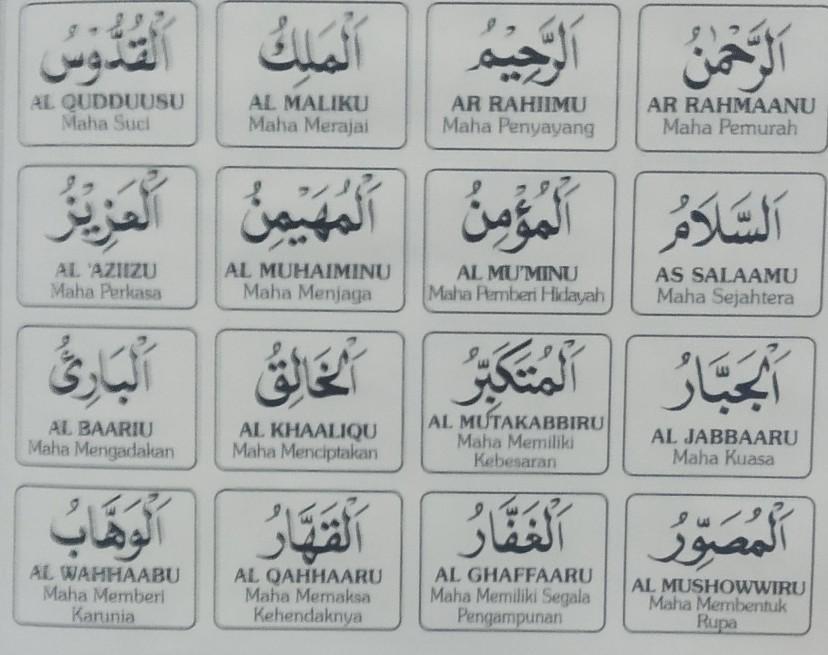 اَلرَّحْمٰنُ
AR RAHMAANU
Maha Pemurah
اَلرَّحِيْمُ
AR RAHIIMU
Maha Penyayang
اَلْمَلِكُ
AL MALIKU
Maha Merajai
اَلْقُدُّوْسُ
AL QUDDUUSU
Maha Suci
اَلسَّلَامُ
AS SALAAMU
Maha Sejahtera
اَلْمُؤْمِنُ
AL MU'MINU
Maha Pemberi Hidayah
اَلْمُهَيْمِنُ
AL MUHAIMINU
Maha Menjaga
اَلْعَزِيْزُ
AL 'AZIIZU
Maha Perkasa
اَلْجَبَّارُ
AL JABBAARU
Maha Kuasa
اَلْمُتَكَبِّرُ
AL MUTAKABBIRU
Maha Memiliki
Kebesaran
اَلْخَالِقُ
AL KHAALIQU
Maha Menciptakan
اَلْبَارِئُ
AL BAARIU
Maha Mengadakan
اَلْمُصَوِّرُ
AL MUSHOWWIRU
Maha Membentuk
Rupa
اَلْغَفَّارُ
AL GHAFFAARU
Maha Memiliki Segala
Pengampunan
اَلْقَهَّارُ
AL QAHHAARU
Maha Memaksa
Kehendaknya
اَلْوَهَّابُ
AL WAHHAABU
Maha Memberi
Karunia